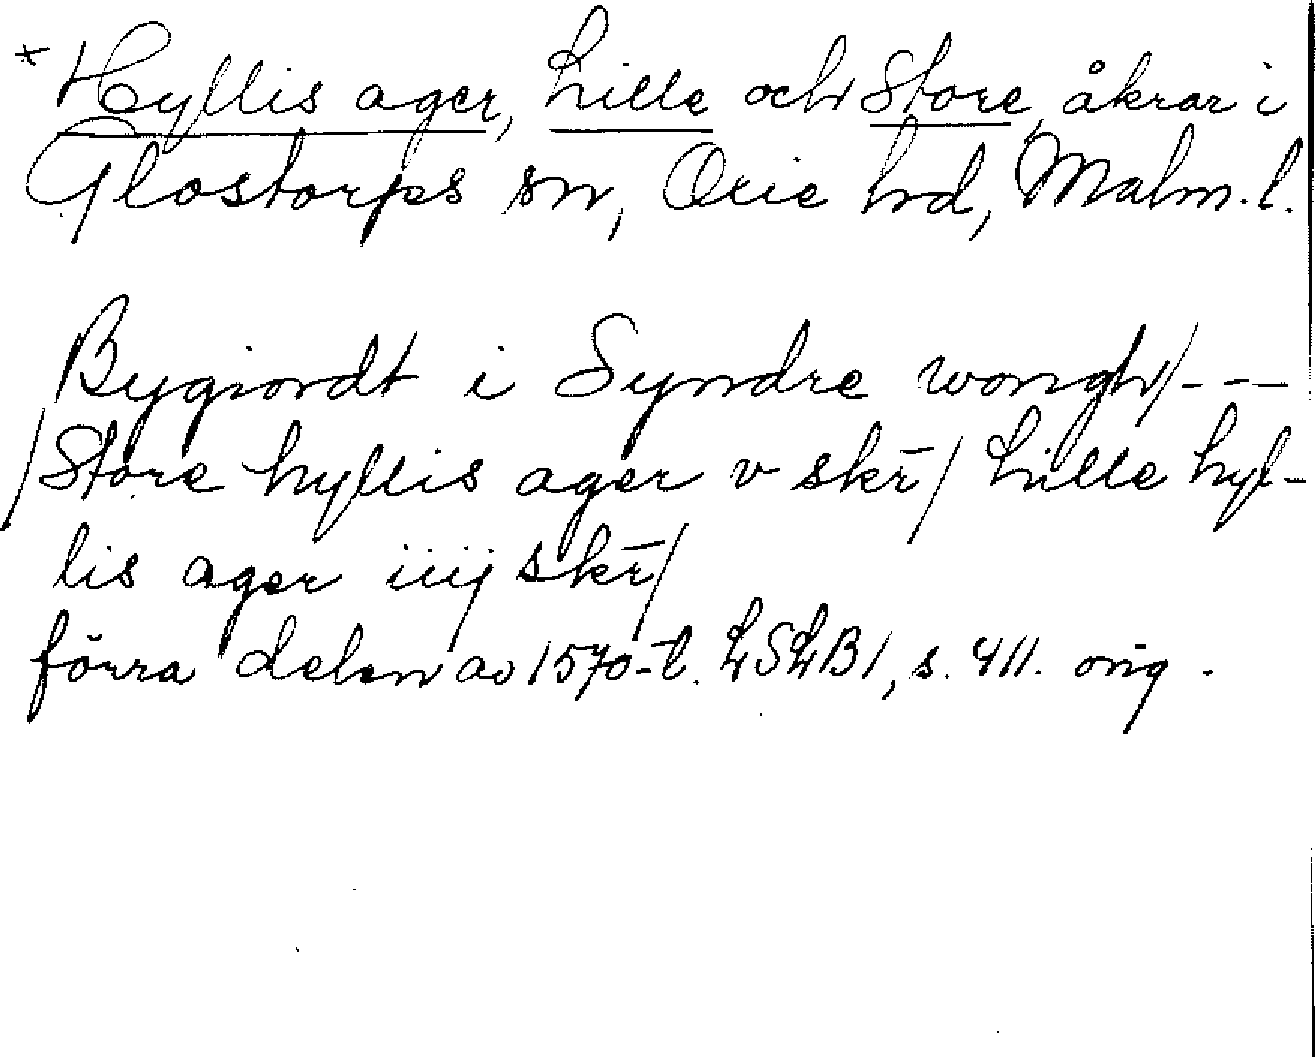 * Hyllis ager, Lille och Store, åkrar i
Glostorps sn, Oxie hd, Malm. l.
Bygiordt i Syndre wongh/---
/Store hyllis ager v skr̄/ Lille hyl-
lis ager iiij skr̄/
förra delen av 1570-t. LSLB1, s. 411. orig.